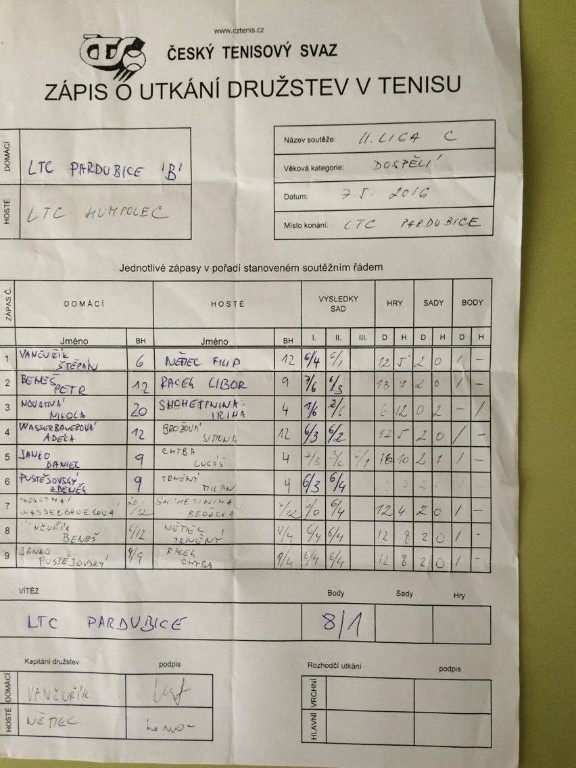 www.cztenis.cz
ČTS
ČESKÝ TENISOVÝ SVAZ
ZÁPIS O UTKÁNÍ DRUŽSTEV V TENISU
DOMÁCÍ LTC PARDUBICE 'B'
HOSTÉ LTC HUMPOLEC
Název soutěže: II. LIGA C
Věková kategorie: DOSPĚLÍ
Datum: 7 5. 2016
Místo konání: LTC PARDUBICE
Jednotlivé zápasy v pořadí stanoveném soutěžním řádem
ZÁPAS Č. DOMÁCÍ HOSTÉ VÝSLEDKY SAD HRY SADY BODY
Jméno BH Jméno BH I. II. III. D H D H D H
1 VANČUŘÍK ŠTĚPÁN 6 NĚMEC FILIP 12 6/4 6/1 12 5 2 0 1 -
2 BENEŠ PETR 12 RACEK LIBOR 9 7/6 6/3 13 9 2 0 1 -
3 NOVOTNÁ NIKOLA 20 SHOMETNINA IRINA 4 1/6 6 12 0 2 - 1
4 WASSERBAUEROVÁ ADÉLA 12 BROŽOVÁ SIMONA 12 6/3 6/2 12 5 2 0 1
5 JANKO DANIEL 9 CHYBA LUKÁŠ 4 6/1 10 2 1 1 -
6 PUSTĚJOVSKÝ ZDENĚK 9 TRNĚNÝ MILAN 4 6/3 6/4
7 NOVOTNÁ WASSERBAUEROVÁ 4/12 6/0 6/4 12 4 2 0 1 -
8 VANČUŘÍK BENEŠ 6/12 NĚMEC TRNĚNÝ 6/4 6/4 12 8 2 0 1 -
9 JANKO PUSTĚJOVSKÝ 9/9 RACEK CHYBA 9/4 6/4 6/4 12 8 2 0 1 -
VÍTĚZ Body Sady Hry
LTC PARDUBICE 8/1
Kapitáni družstev podpis
DOMÁCÍ VANČUŘÍK
HOSTÉ NĚMEC
Rozhodčí utkání podpis
VRCHNÍ
HLAVNÍ